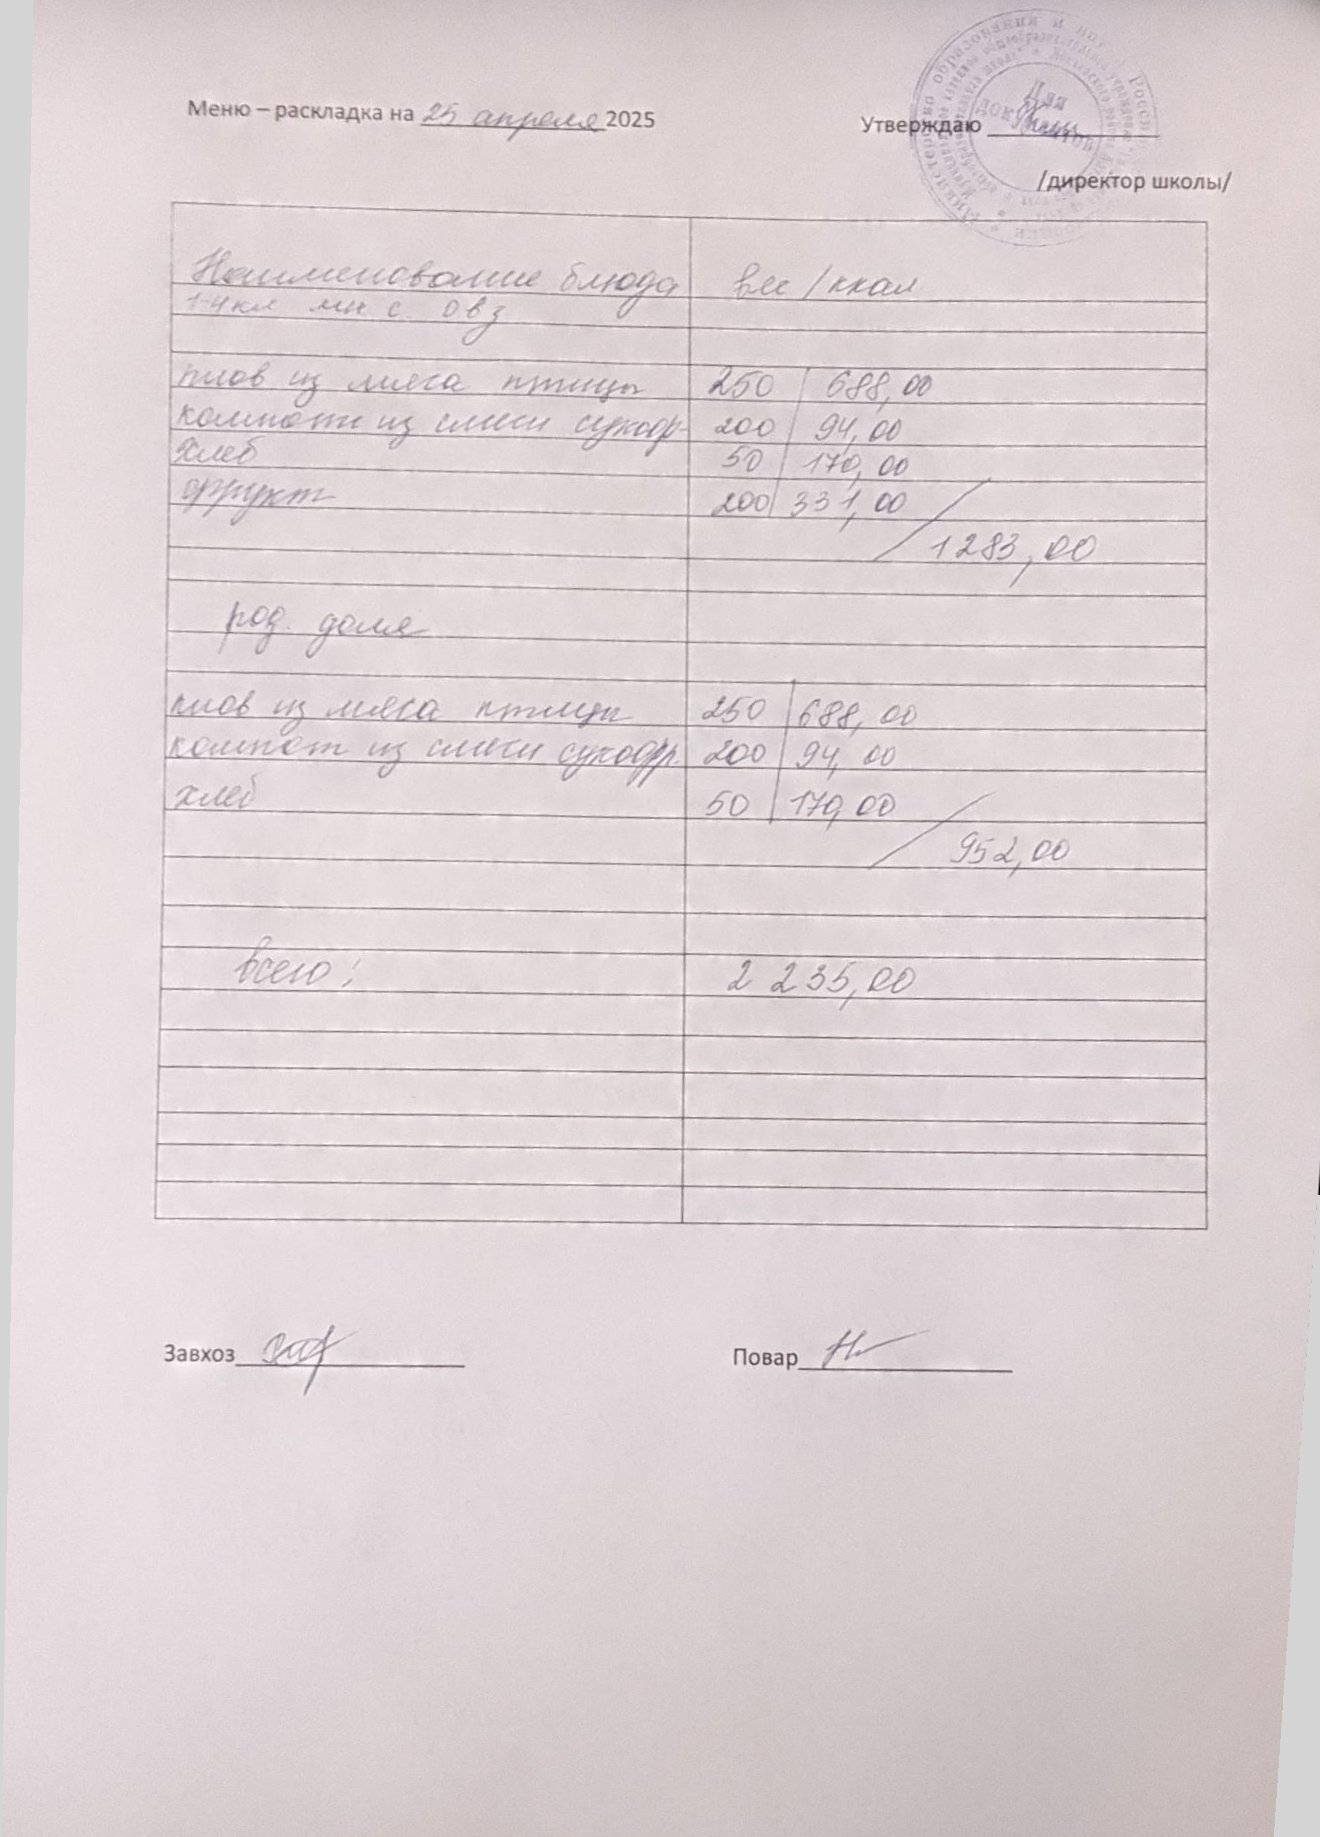 Меню – раскладка на 25 апреля 2025
Утверждаю
Для
документов
/директор школы/
Наименование блюда вес/ккал
1-4кл мн с. овз
плов из мяса птицы 250 688,00
компот из смеси сухофр. 200 94,00
хлеб 50 170,00
фрукт 200 331,00
1283,00
род. доля
плов из мяса птицы 250 688,00
компот из смеси сухофр. 200 94,00
хлеб 50 170,00
952,00
всего: 2 235,00
Завхоз Повар